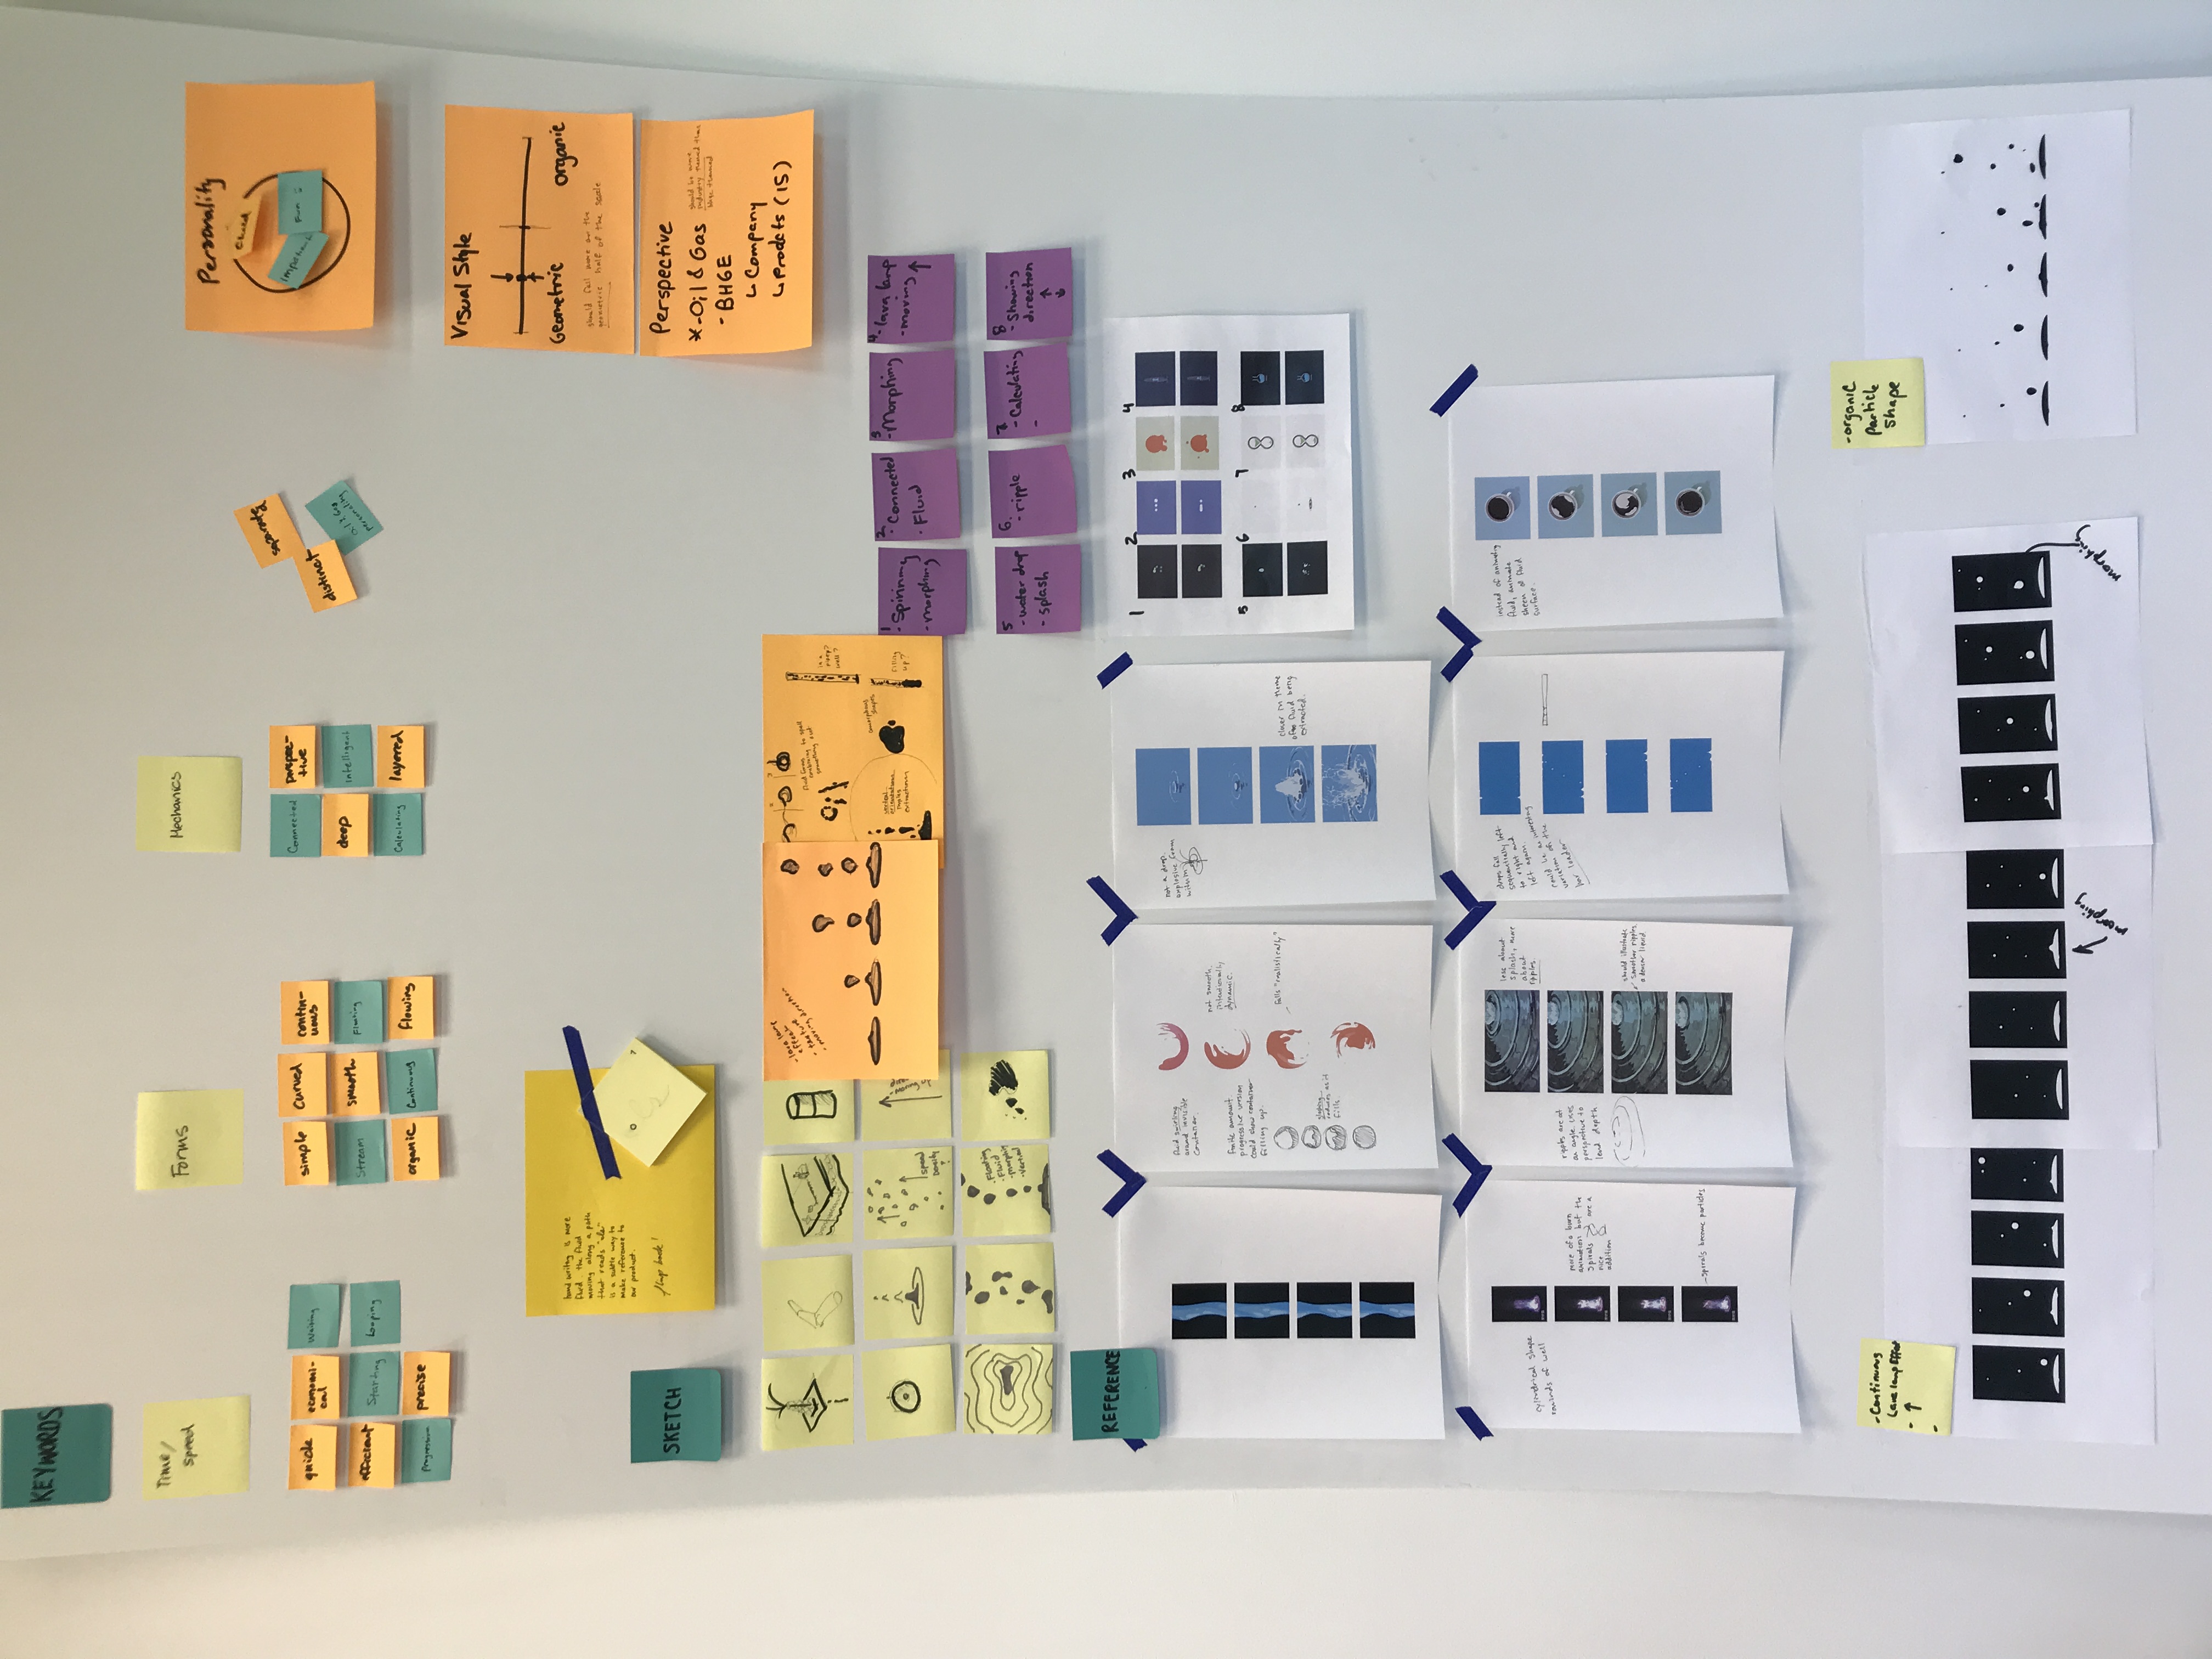 KEYWORDS
Time/
speed
Forms
Mechanics
quick
economi-
cal
Waiting
efficient
Starting
Looping
Progression
precise
simple
curved
contin-
uous
Stream
smooth
Floating
organic
Continuous
flowing
Connected
perspec-
tive
deep
Intelligent
Calculating
layered
separated
distinct
oil & gas
personality
Personality
fluid
Important
Fun
Visual Style
Geometric
organic
should fall more on the
geometric half of the scale
Perspective
*-Oil & Gas
should be more
industry themed than
bhge themed
- BHGE
↳ Company
↳ Prodcts (IS)
hand writing is more
fluid. the fluid
moving along a path
that reads
is a subtle way to
make reference to
our product.
SKETCH
speed
density?
- Floating
- Fluid
- morphing
- Vertical
- lava lamp
effect
- texture
- moving direction
fluid forms
combining to spell
something out
is a
well?
vertical
orientation
implies
extraction
amorphous
shapes
filling
up?
1
- Spinning
- morphing
2
- Connected
- Fluid
3
- Morphing
4
- lava lamp
- moving ↑
5
- water drop
- splash
6.
- ripple
7
- Calculating
-
8
- Showing
direction
↑
↓
REFERENCE
fluid swirling
around invisible
container.
finite amount
progressive version
could show container
filling up.
sloshing
reduces as it
fills.
not smooth.
intentionally
dynamic.
falls "realistically"
not a drop.
explosive from
within
closer in theme
of a fluid being
extracted.
1 2 3 4
5 6 7 8
cylindrical shape
reminds of well
more of a burn
animation but the
spirals are a
nice
addition
- spirals become particles
less about
splash, more
about
ripples.
ripples are at
an angle. uses
perspective to
lend depth.
should illustrate
smoother ripples,
a denser liquid.
drops fall
sequentially left
to right and
left again.
could be an interesting
variation of the
bar loader
instead of animating
fluid, animate
sheen of fluid
surface.
- Continuous
Lava lamp Effect
- ↑
-
- organic
particle
shape
morphing
morphing